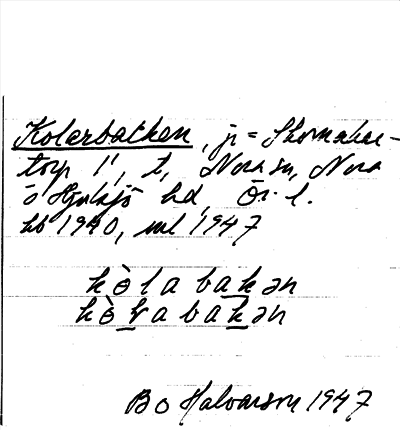 Kolarbacken, jr = Skomakar-
torp 1¹, t, Nora sn, Nora
o Hjulsjö hd, Ör. l.
hb 1940, uml 1947
kò̱la bakən
kò̱ḻa baḵən
Bo Halvarson 1947